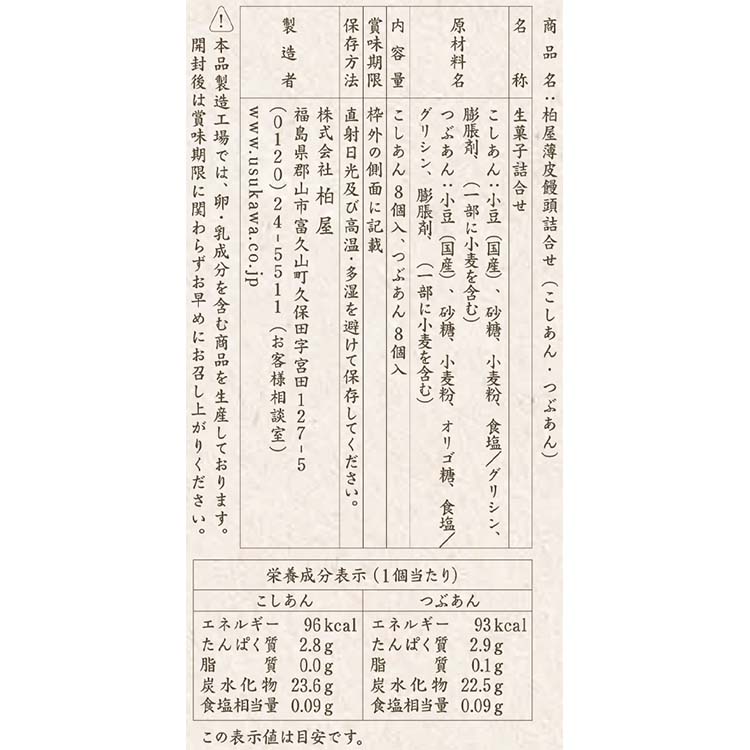 商品名：柏屋薄皮饅頭詰合せ（こしあん・つぶあん）
名称 生菓子詰合せ
原材料名 こしあん：小豆（国産）、砂糖、小麦粉、食塩／グリシン、
膨脹剤、（一部に小麦を含む）
つぶあん：小豆（国産）、砂糖、小麦粉、オリゴ糖、食塩／
グリシン、膨脹剤、（一部に小麦を含む）
内容量 こしあん8個入、つぶあん8個入
賞味期限 枠外の側面に記載
保存方法 直射日光及び高温・多湿を避けて保存してください。
製造者 株式会社 柏屋
福島県郡山市富久山町久保田字宮田127-5
（0120）24-5511（お客様相談室）
www.usukawa.co.jp
本品製造工場では、卵・乳成分を含む商品を生産しております。
開封後は賞味期限に関わらずお早めにお召し上がりください。
栄養成分表示（1個当たり）
こしあん つぶあん
エネルギー 96kcal エネルギー 93kcal
たんぱく質 2.8g たんぱく質 2.9g
脂質 0.0g 脂質 0.1g
炭水化物 23.6g 炭水化物 22.5g
食塩相当量 0.09g 食塩相当量 0.09g
この表示値は目安です。